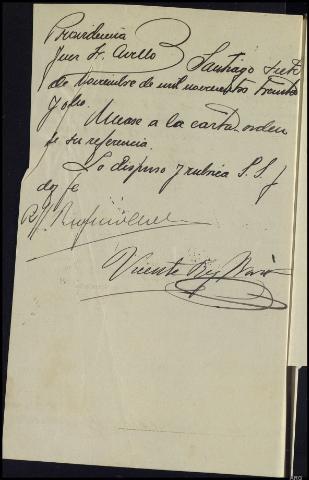 Providencia
Juez Sr. Avello } Santiago siete
de noviembre de mil novecientos treinta
y ocho.
Únase a la carta-orden
de su referencia.
Lo dispuso y rubrica S.S. y
doy fe
Vicente Rey